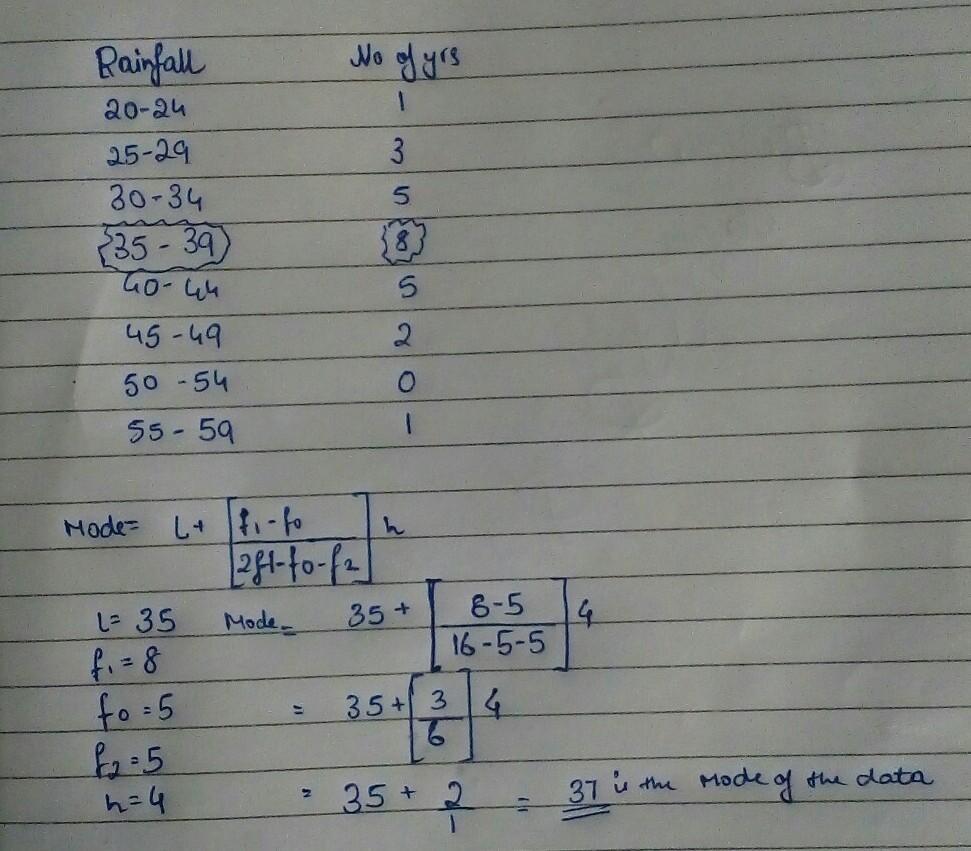 Rainfall No of yrs
20-24 1
25-29 3
30-34 5
35-39 8
40-44 5
45-49 2
50-54 0
55-59 1
Mode= L+ [f1-f0 / 2f1-f0-f2] h
l= 35 Mode= 35+ [8-5 / 16-5-5] 4
f1=8
f0=5 = 35+ [3/6] 4
f2=5
h=4 = 35 + 2/1 = 37 is the Mode of the data